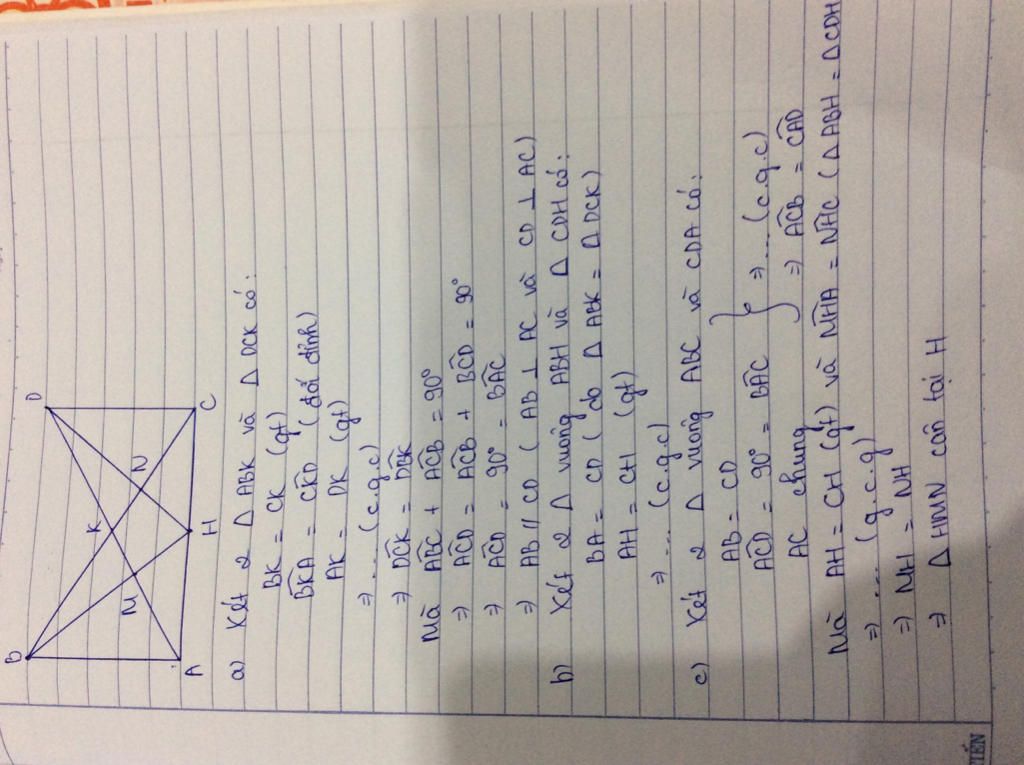 B
D
K
M
N
A
H
C
a) Xét 2 Δ ABK và Δ DCK có:
BK = CK (gt)
B̂KA = ĈKD (đối đỉnh)
AK = DK (gt)
⇒ ... (c.g.c)
⇒ D̂CK = D̂BK
Mà ÂBC + ÂCB = 90°
⇒ ÂCD = ÂCB + B̂CD = 90°
⇒ ÂCD = 90° = B̂AC
⇒ AB // CD (AB ⊥ AC và CD ⊥ AC)
b) Xét 2 Δ vuông ABH và Δ CDH có:
BA = CD (do Δ ABK = Δ DCK)
AH = CH (gt)
⇒ ... (c.g.c)
c) Xét 2 Δ vuông ABC và CDA có:
AB = CD
ÂCD = 90° = B̂AC } ⇒ ... (c.g.c)
AC chung ⇒ ÂCB = ĈAD
Mà AH = CH (gt) và M̂HA = N̂HC (Δ ABH = Δ CDH
⇒ ... (g.c.g)
⇒ MH = NH
⇒ Δ HMN cân tại H
TIẾN